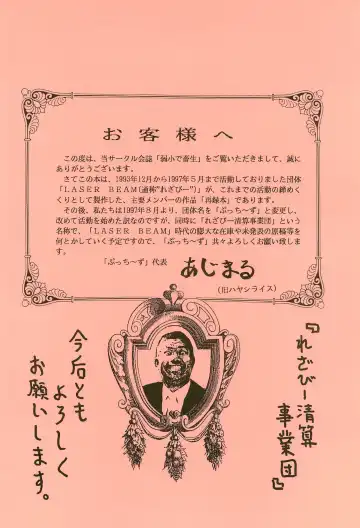 お客様へ
この度は、当サークル会誌「弱小で畜生」をご覧いただきまして、誠に
ありがとうございます。
さてこの本は、1993年12月から1997年5月まで活動しておりました団体
「LASER BEAM(通称"れざびー")」が、これまでの活動の締めく
くりとして製作した、主要メンバーの作品「再録本」であります。
その後、私たちは1997年8月より、団体名を「ぷっち〜ず」と変更し、
改めて活動を始めた訳なのですが、同時に「れざびー清算事業団」という
名称で、「LASER BEAM」時代の膨大な在庫や未発表の原稿等を
何とかしていく予定ですので、「ぷっち〜ず」共々よろしくお願い致しま
す。
「ぷっち〜ず」代表 あじまる
(旧ハヤシライス)
『れざびー清算
事業団』
今后とも
よろしく
お願いします。